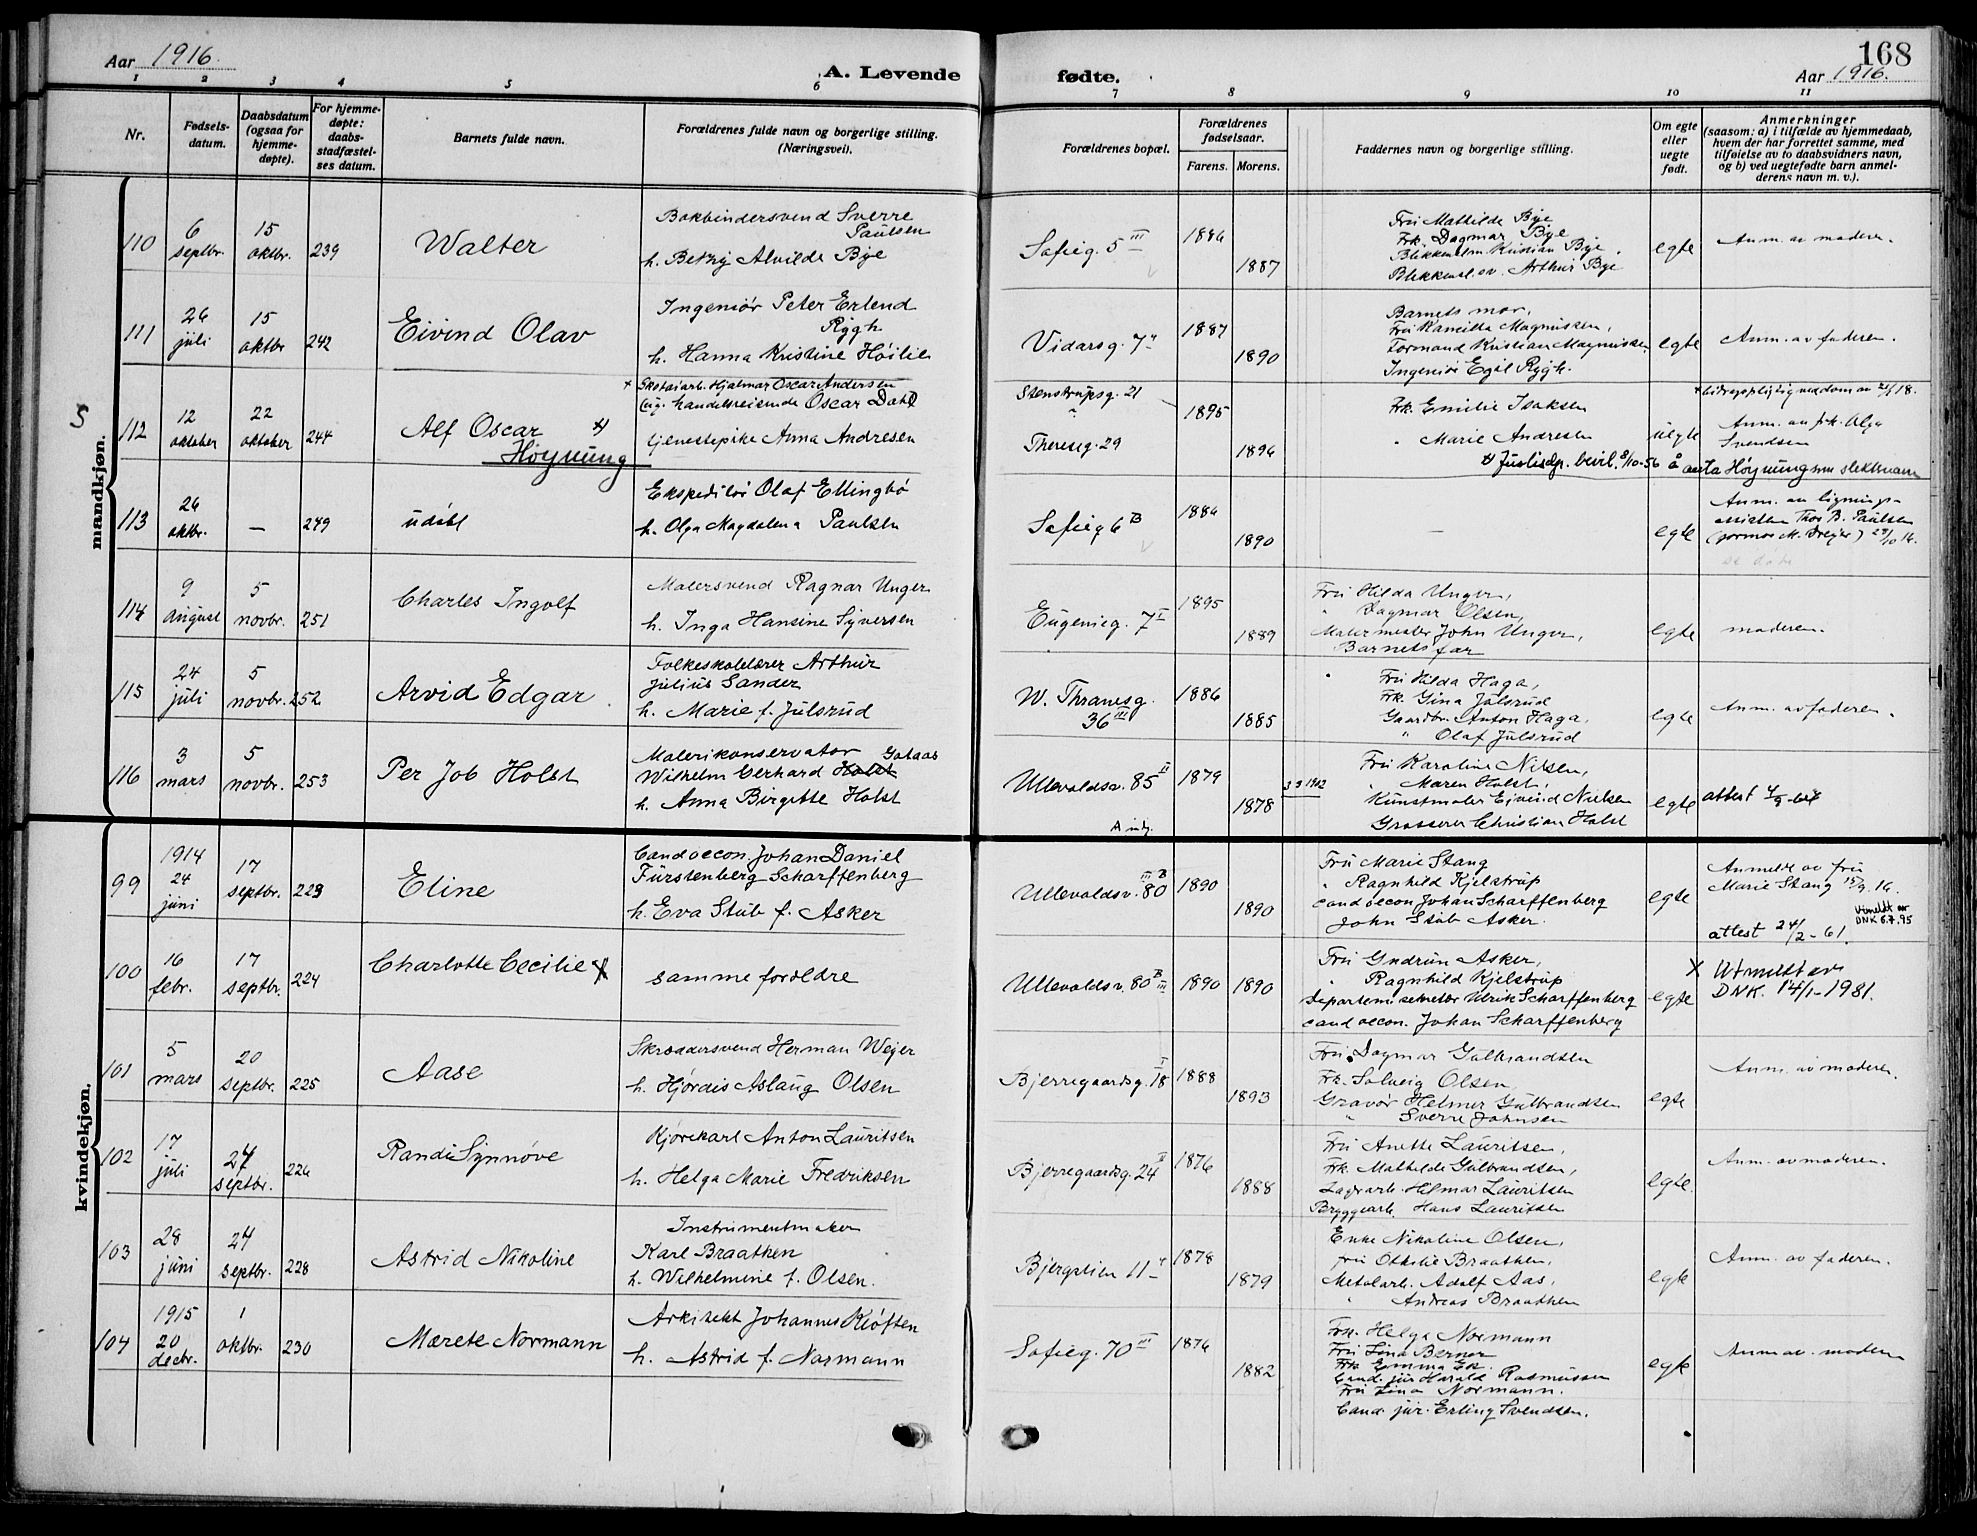 Aar 1916.
A. Levende fødte.
168
Aar 1916.
1 2 3 4 5 6 7 8 9 10 11
Nr.
Fødsels-
datum.
Daabsdatum
(ogsaa for
hjemme-
døpte).
For hjemme-
døpte:
daabs-
stadfæstel-
ses datum.
Barnets fulde navn.
Forældrenes fulde navn og borgerlige stilling.
(Næringsvei).
Forældrenes bopæl.
Forældrenes
fødselsaar.
Farens. Morens.
Faddernes navn og borgerlige stilling.
Om egte
eller
uegte
født.
Anmerkninger
(saasom: a) i tilfælde av hjemmedaab,
hvem der har forrettet samme, med
tilføielse av to daabsvidners navn,
og b) ved uegtefødte barn anmel-
derens navn m. v.).
mandkjøn.
110
6
septbr.
15
oktbr.
239
Walter
Bokbindersvend Sverre
Paulsen
h. Betzy Alvilde Bye
Sofieg. 5 III
1886
1887
Fru Mathilde Bye
Frk. Dagmar Bye
Blikkenslm. Kristian Bye
Blikkensl.sv. Arthur Bye
egte
Anm. av moderen.
111
26
juli
15
oktbr
242
Eivind Olav
Ingeniør Peter Erlend
Rygh
h. Hanna Kristine Høilie
Vidarsg. 7
1887
1890
Barnets mor,
Fru Kamilla Magnussen,
Formand Kristian Magnussen
Ingeniør Egil Rygh.
egte
Anm. av faderen.
5
112
12
oktober
22
oktober
244
Alf Oscar x)
Høynung
x Skotøiarb. Hjalmar Oscar Andersen
(ug. handelsreisende Oscar Dahl
tjenestepike Anna Andresen
Stenstrupsg. 21
Theresg. 29
1895
1896
Frk. Emilie Isaksen
" Marie Andresen
uegte
x bidragspligtig ved dom av 21/1 18.
Anm. av frk. Olga
Svendsen
x) Justisdp. bevil. 8/10-56 å anta Høynung som slektsnavn
113
26
oktbr.
—
249
udøbt
Ekspeditør Olaf Ellingbø
h. Olga Magdalena Paulsen
Sofieg 6 B
1886
1890
—
egte
Anm. av lignings-
assistent Thor B. Paulsen
(jormor M. Dreyer) 28/10 16.
114
9
august
5
novbr.
251
Charles Ingolf
Malersvend Ragnar Unger
h. Inga Hansine Syversen
Eugenieg. 7 I
1895
1889
Fru Hilda Unger,
" Dagmar Olsen,
Malermester John Unger,
Barnets far
egte
moderen.
115
24
juli
5
novbr.
252
Arvid Edgar
Folkeskolelærer Arthur
Julius Sander
h. Marie f. Julsrud
W. Thranesg.
36 III
1886
1885
Fru Hilda Haga,
Frk. Gina Julsrud
Gaardbr. Anton Haga,
" Olaf Julsrud
egte
Anm. av faderen.
116
3
mars
5
novbr.
253
Per Job Holst
Malerikonservator Gotaas
Wilhelm Gerhard Holst
h. Anna Birgitte Holst
Ullevoldsv. 85 II
1879
1878
3 9 1942
Fru Karoline Nielsen,
" Maren Holst,
Kunstmaler Eivind Nielsen
Grosserer Christian Holst
egte
attest 4/9-64
kvindekjøn.
99
1914
24
juni
17
septbr.
223
Eline
Cand oecon. Johan Daniel
Fürstenberg Scharffenberg
h. Eva Stub f. Asker
Ullevoldsv. 80 B III
1890
1890
Fru Marie Stang
" Ragnhild Kjelstrup
cand oecon Johan Scharffenberg
John Stub Asker.
egte
Anmeldt av fru
Marie Stang 15/9. 16.
Utmeldt av
DNK 6.7.95
attest 24/2-61.
100
16
febr.
17
septbr.
224
Charlotte Cecilie x
samme foreldre
Ullevoldsv. 80 B III
1890
1890
Fru Gudrun Asker,
" Ragnhild Kjelstrup
departem. sekretær Ulrik Scharffenberg
cand oecon. Johan Scharffenberg
egte
x Utmeldt av
DNK. 14/1-1981.
101
5
mars
20
septbr.
225
Aase
Skræddersvend Herman Weyer
h. Hjørdis Aslaug Olsen
Bjerregaardsg. 18 I
1888
1893
Fru Dagmar Gulbrandsen
Frk. Solveig Olsen
Gravør Helmer Gulbrandsen
" Sverre Johnsen
egte
Anm. av moderen.
102
17
juli
24
septbr.
226
Randi Synnøve
Kjørekarl Anton Lauritsen
h. Helga Marie Fredriksen
Bjerregaardsg. 24 II
1876
1888
Fru Anette Lauritsen,
Frk. Mathilde Gulbrandsen,
Lagerarb. Hilmar Lauritsen
Bryggearb. Hans Lauritsen
egte.
Anm. av moderen.
103
28
juni
24
septbr.
228
Astrid Nikoline
Instrumentmaker
Karl Braathen
h. Wilhelmine f. Olsen.
Bjergstien 11
1878
1879
Enke Nikoline Olsen,
fru Othilie Braathen,
Metalarb. Adolf Aas,
" Andreas Braathen
egte
Anm. av faderen.
104
1915
20
decbr.
1
oktbr.
230
Mærete Normann
Arkitekt Johannes Kløften
h. Astrid f. Normann
Sofieg. 70 III
1876
1882
Frk. Helga Normann
Fru Lina Berner
Frk. Emma Ek.
Cand. jur Harald Rasmussen
Fru Lina Normann.
Cand. jur. Erling Svendsen.
egte
Anm av. moderen